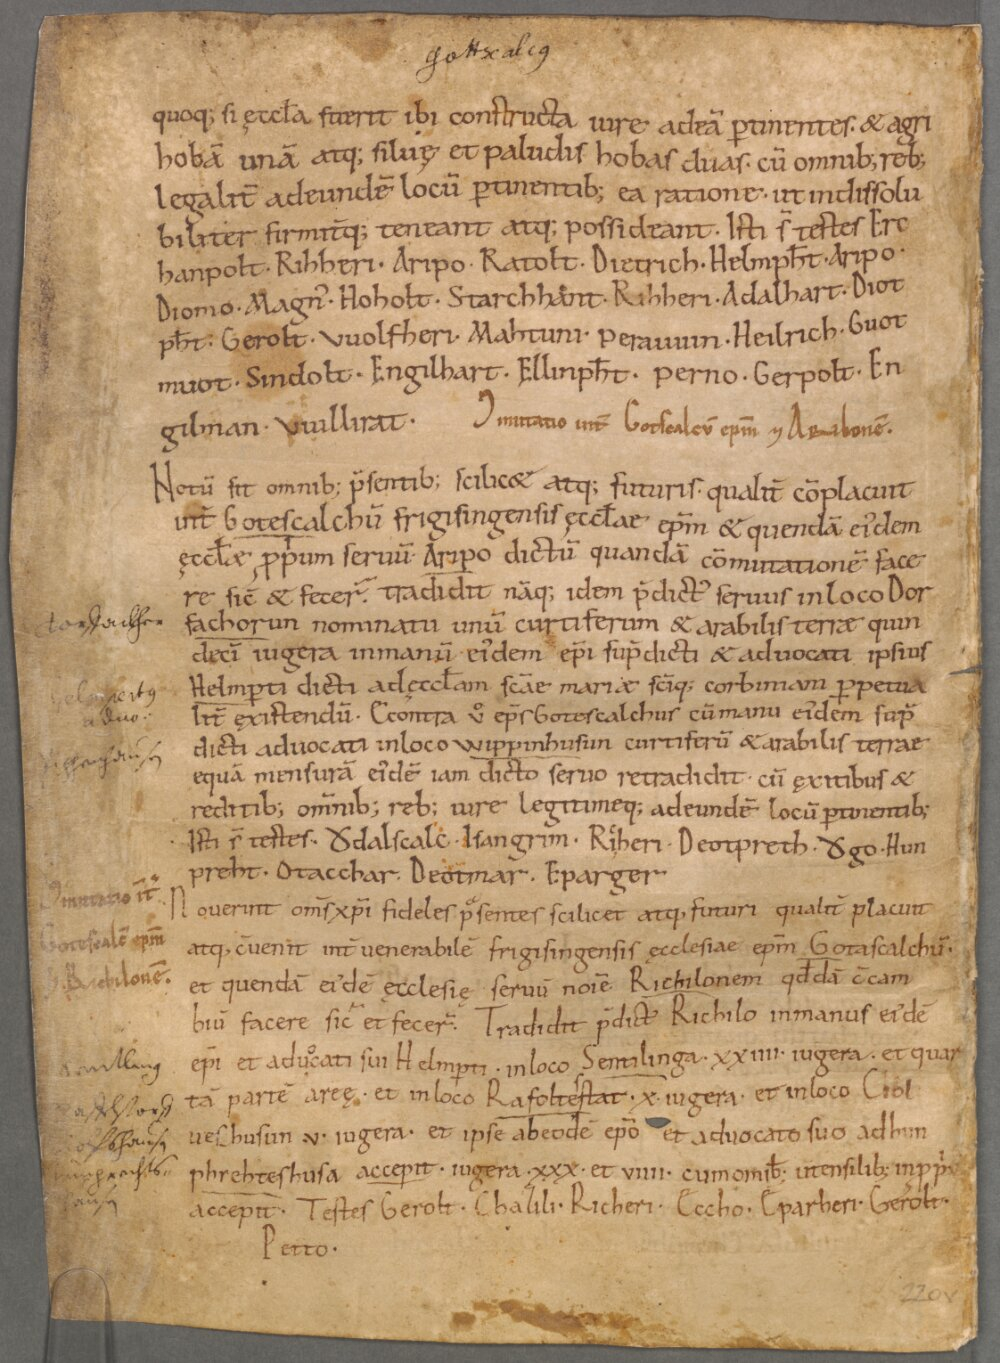 Gottscalcꝰ
quoq; si ęccła fuerit ibi constructa iure adeā ꝑtinentes. & agri
hobā unā atq; siluę et paludis hobas duas. cū omnib; reb;
legalit̄ adeundē locū ꝑtinentib; ea ratione. ut indissolu
biliter firmit̄q; teneant atq; possideant. Isti s̄ testes Erc
hanpolt. Rihheri. Aripo. Ratolt. Dietrich. Helmpħt. Aripo.
Diomo. Magnꝰ. Hoholt. Starchhant. Rihheri. Adalhart. Diot
pħt. Gerolt. Vuolfheri. Mahtuni. Perauuin. Heilrich. Guot
muot. Sindolt. Engilhart. Ellinpħt. Perno. Gerpolt. En
gilman. Vuillirat. Ɔmutatio int̄ Gotscalcū ep̄m ⁊ Aribonē.
Notū sit omnib; p̄sentib; scilic& atq; futuris. qualit̄ cōplacuit
int̄ Gotescalchū frigisingensis ęccłae ep̄m & quendā ei'dem
ęccłæ ꝓp̄um seruū Aripo dictū quandā cōmutationē face
re sic̄ & fecer̄. Tradidit nāq; idem p̄dictꝰ seruus inloco Dor
fachorun nominatu unū curtiferum & arabilis terræ quin
deci̅ iugera inmanū ei'dem ep̄i sup̄dicti & aduocati ipsius
Helmperti dicti adęccłam sc̄ae mariæ sc̄iq; corbiniani ꝑpetua
lit̄ ęxistendū. Ccontra v̊ ep̄s Gotescalchus cūmanu ei'dem sup̄
dicti aduocati inloco Wippinhusun curtiferū & arabilis terrae
equā mensurā ei'dē iam dicto seruo retradidit. cū ęxitibus &
reditib; om̄nib; reb; iure legitimeq; adeundē locū ꝑtinentib;
Isti s̄ testes. Ȣdalscalc. Isangrim. Riheri. Deotpreth. Ȣgo. Hun
preht. Otacchar. Deotmar. Eparger
Ɔmutatio it̄
Gotescalcū ep̄m
⁊ Richilonē.
Nouerint om̄s xp̄i fideles p̊sentes scilicet atq, futuri qualit̄ placuit
atq, c̄uenit int̄ venerabilē frigisingensis ęcclesiae ep̄m Gotascalchū.
et quendā ei'dē ęcclesię seruū noiē Richilonem qd̄dā c̄cam
biū facere sic̄ et fecer̄. Tradidit p̄dict̄ Richilo inmanus ei'dē
ep̄i et aduocati sui Helmperti. inloco Sentilinga. xxiiii. iugera. et quar
tā partē areę. et inloco Rafoltestat. x. iugera. et inloco Ciol
ueshusun v. iugera. et ipse abeodē ep̄o et aduocato suo adhun
phrehteshusa accepit. iugera. xxx. et viiii. cumomib̄. utensilib; inpp̄
accepit. Testes Gerolt. Chalili. Richeri. Cccho. Eparheri. Gerolt.
Petto.
220v